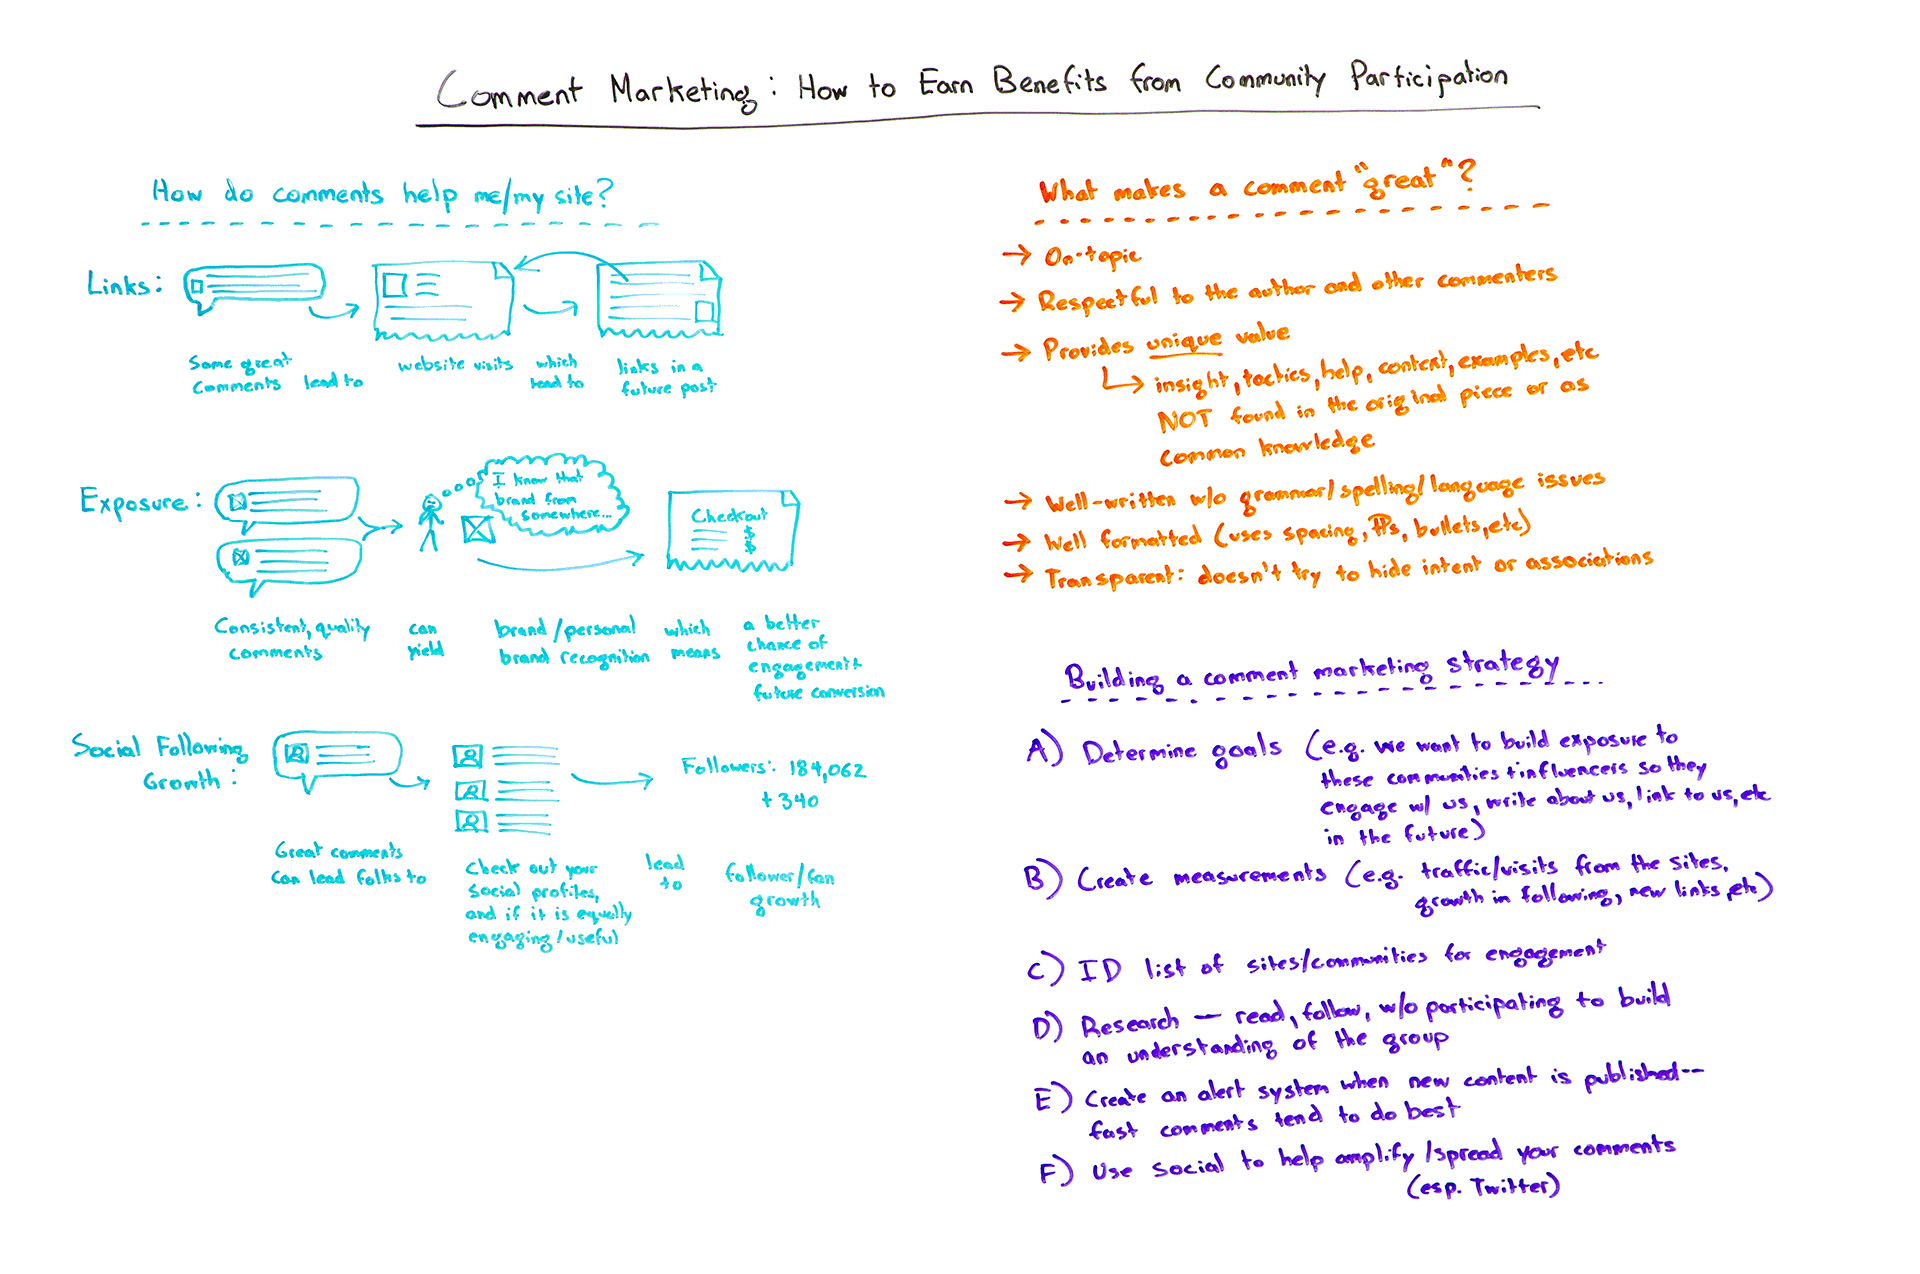 Comment Marketing: How to Earn Benefits from Community Participation
How do comments help me/my site?
Links:
Some great
comments lead to
website visits
which
lead to
links in a
future post
Exposure:
I know that
brand from
somewhere...
Checkout
$
$
Consistent, quality
comments
can
yield
brand/personal
brand recognition
which
means
a better
chance of
engagement +
future conversion
Social Following
Growth:
Followers: 184,062
+340
Great comments
can lead folks to
Check out your
social profiles,
and if it is equally
engaging/useful
lead
to
follower/fan
growth
What makes a comment "great"?
→ On-topic
→ Respectful to the author and other commenters
→ Provides unique value
↳ insight, tactics, help, context, examples, etc
NOT found in the original piece or as
common knowledge
→ Well-written w/o grammar/spelling/language issues
→ Well formatted (uses spacing, ¶s, bullets, etc)
→ Transparent: doesn't try to hide intent or associations
Building a comment marketing strategy
A) Determine goals (e.g. we want to build exposure to
these communities + influencers so they
engage w/ us, write about us, link to us, etc
in the future)
B) Create measurements (e.g. traffic/visits from the sites,
growth in following, new links, etc)
C) ID list of sites/communities for engagement
D) Research — read, follow, w/o participating to build
an understanding of the group
E) Create an alert system when new content is published--
fast comments tend to do best
F) Use social to help amplify/spread your comments
(esp. Twitter)